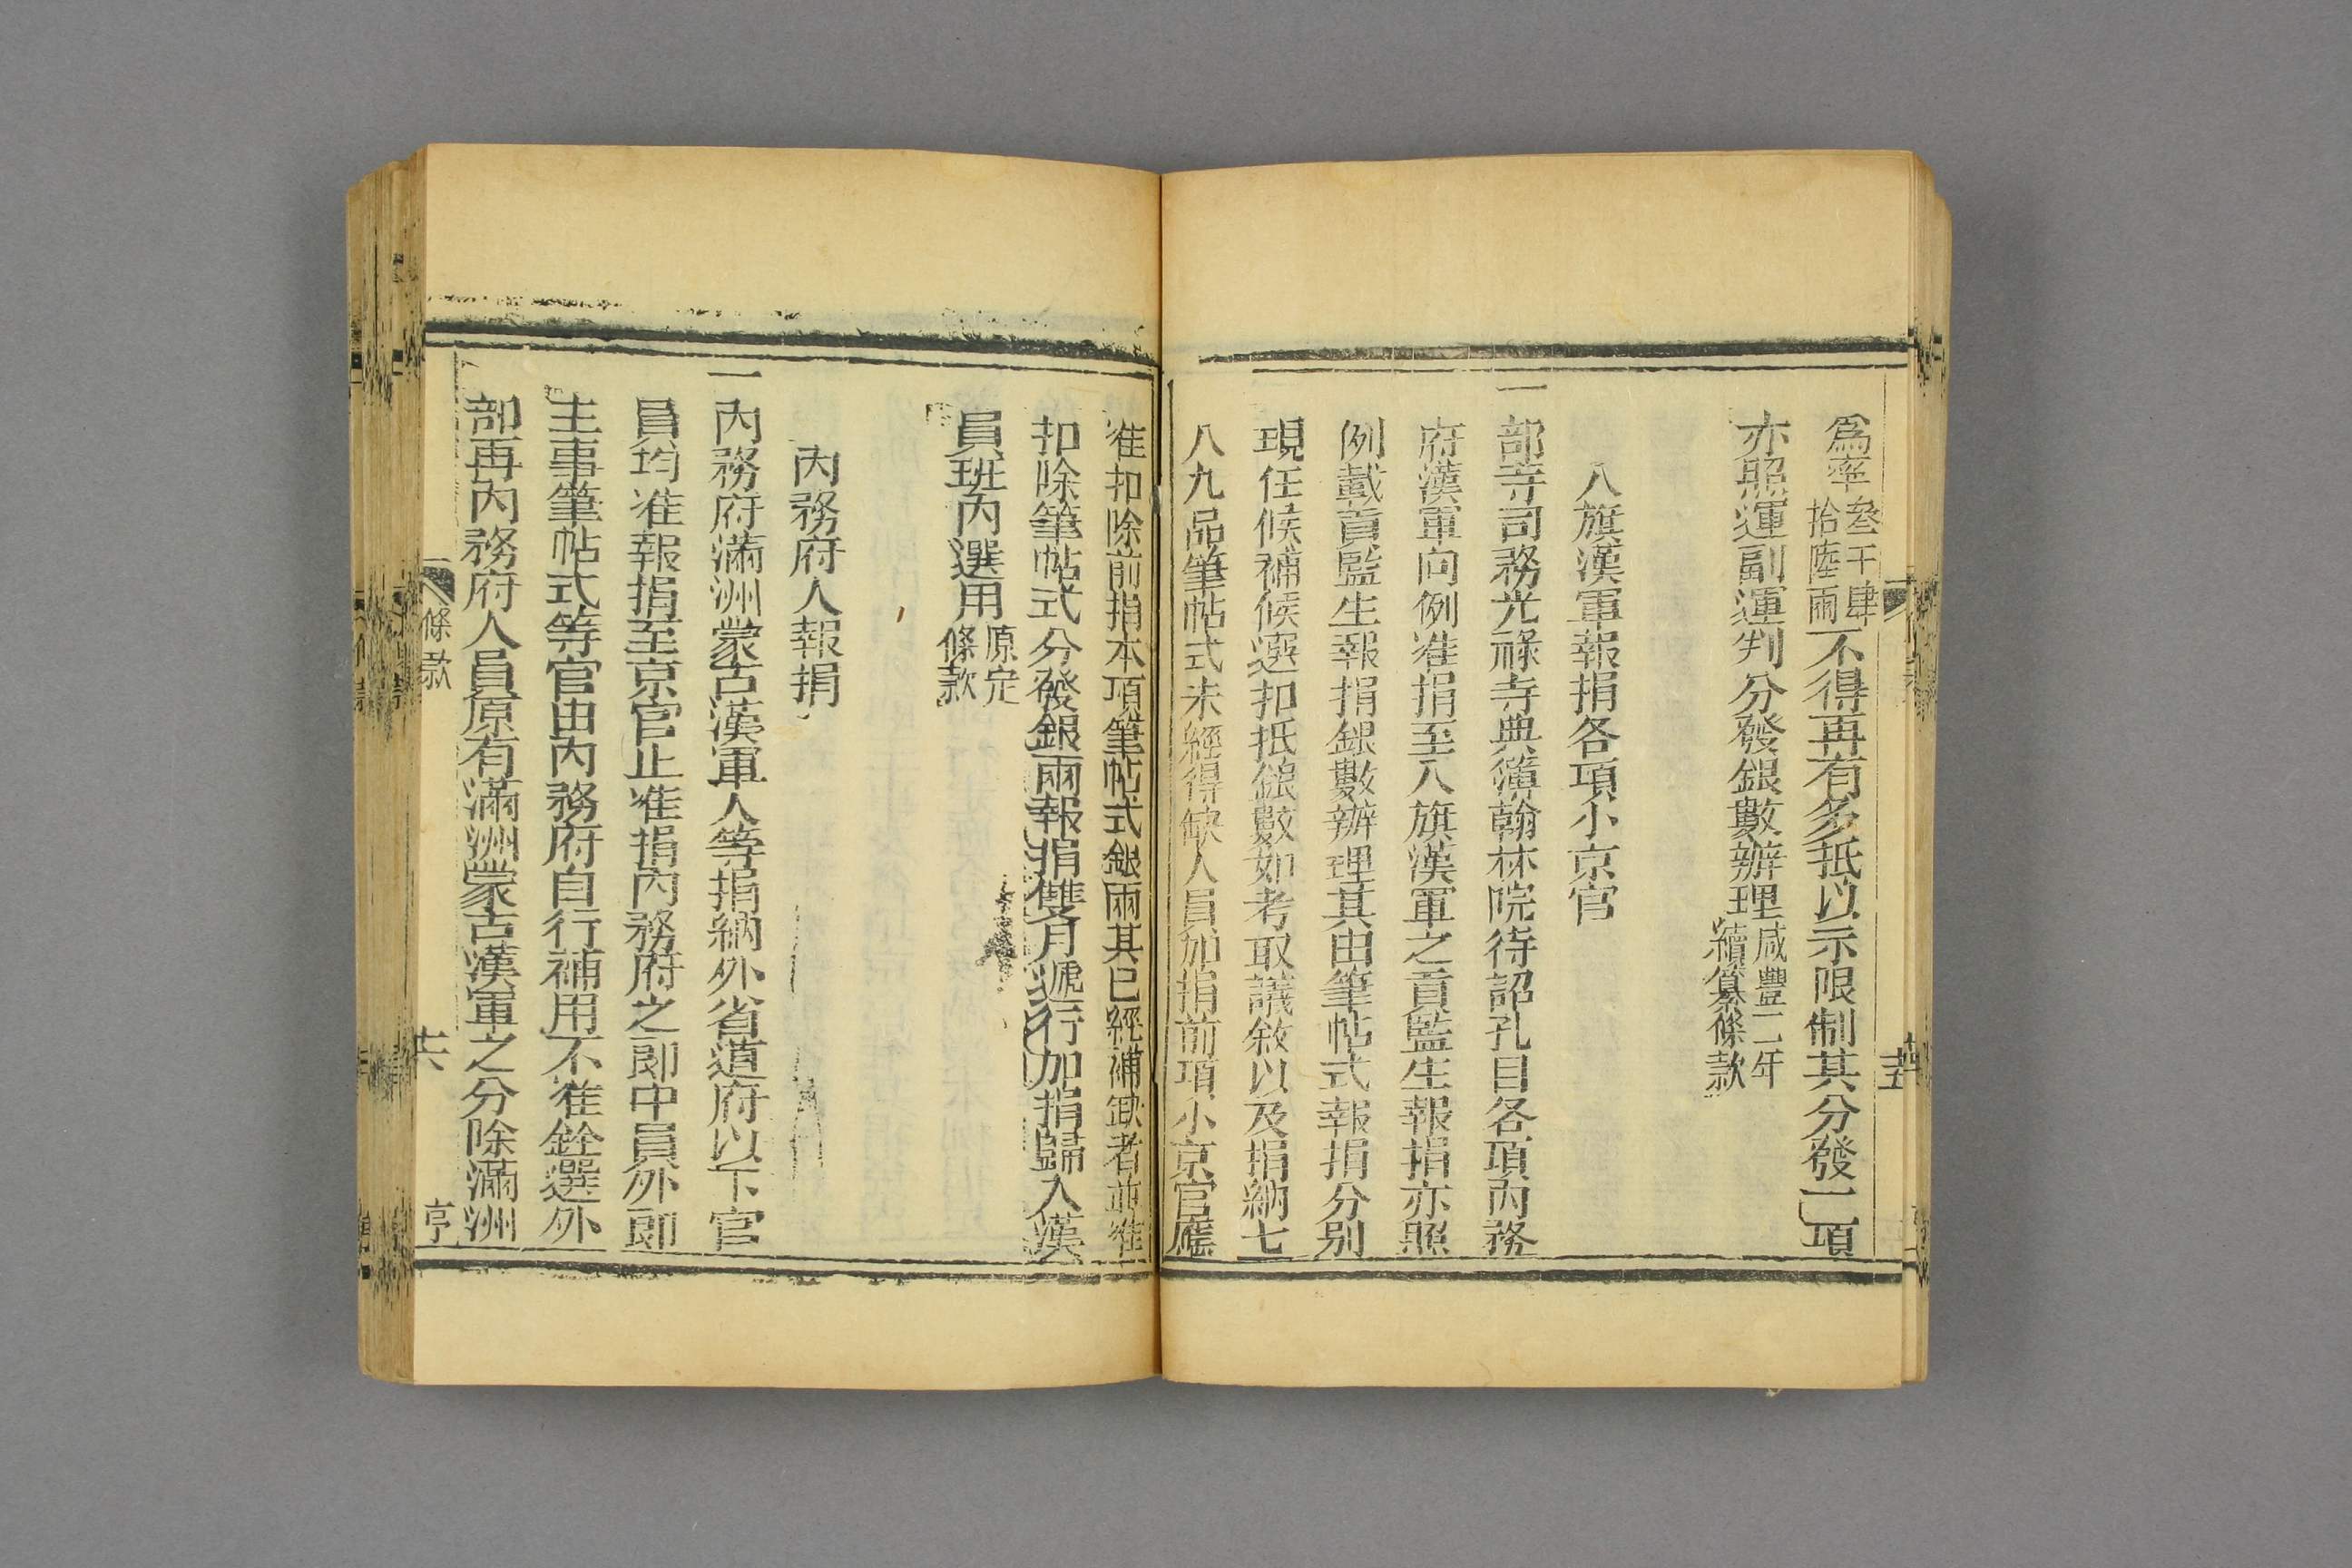 爲率叁千肆拾陸兩不得再有多抵以示限制其分發一項
亦照運副運判分發銀數辦理咸豐二年續纂條款
八旗漢軍報捐各項小京官
一部寺司務光祿寺典簿翰林院待詔孔目各項內務
府漢軍向例准捐至八旗漢軍之貢監生報捐亦照
例戴貢監生報捐銀數辦理其由筆帖式報捐分別
現任候補候選扣抵銀數如考取議敘以及捐納七
八九品筆帖式未經得缺人員加捐前項小京官應
准扣除前捐本項筆帖式銀兩其已經補缺者並准
扣除筆帖式分發銀兩報捐雙月遞行加捐歸入漢
員班內選用原定條款
內務府人報捐
一內務府滿洲蒙古漢軍人等捐納外省道府以下官
員均准報捐至京官止准捐內務府之郎中員外郎
主事筆帖式等官由內務府自行補用不准銓選外
部再內務府人員原有滿洲蒙古漢軍之分除滿洲
條款
十六
亨